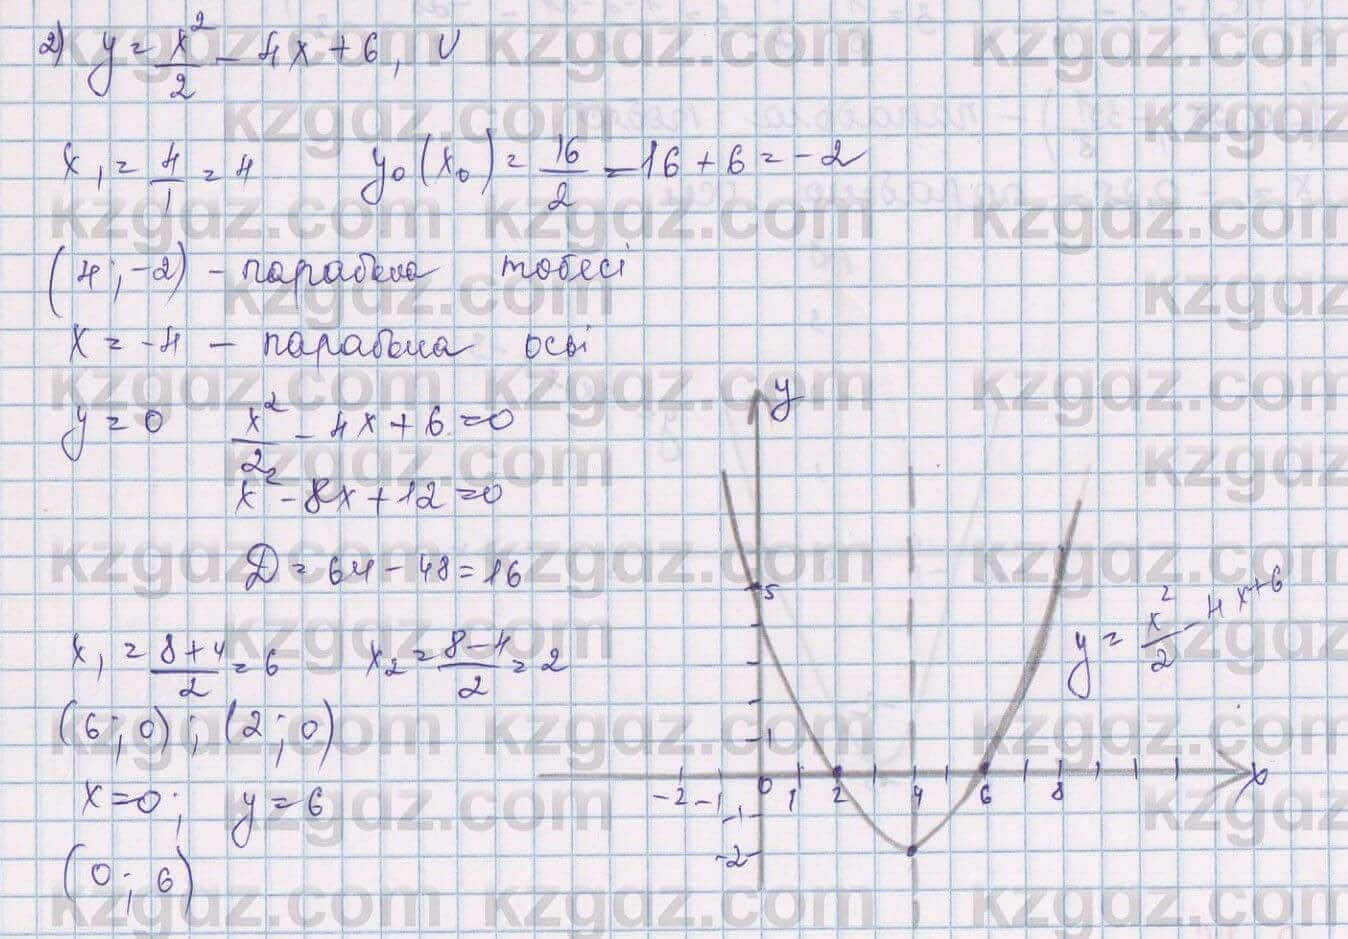 2) y = x²/2 - 4x + 6, V
x₁ = 4/1 = 4 y₀(x₀) = 16/2 - 16 + 6 = -2
(4; -2) - парабола төбесі
x = -4 - парабола осы
y = 0 x²/2 - 4x + 6 = 0
x² - 8x + 12 = 0
D = 64 - 48 = 16
x₁ = (8+4)/2 = 6 x₂ = (8-4)/2 = 2
(6; 0); (2; 0)
x = 0; y = 6
(0; 6)
y
5
1
-2 -1 0 1 2 4 6 8 x
-1
-2
y = x²/2 - 4x+6
kzgdz.com